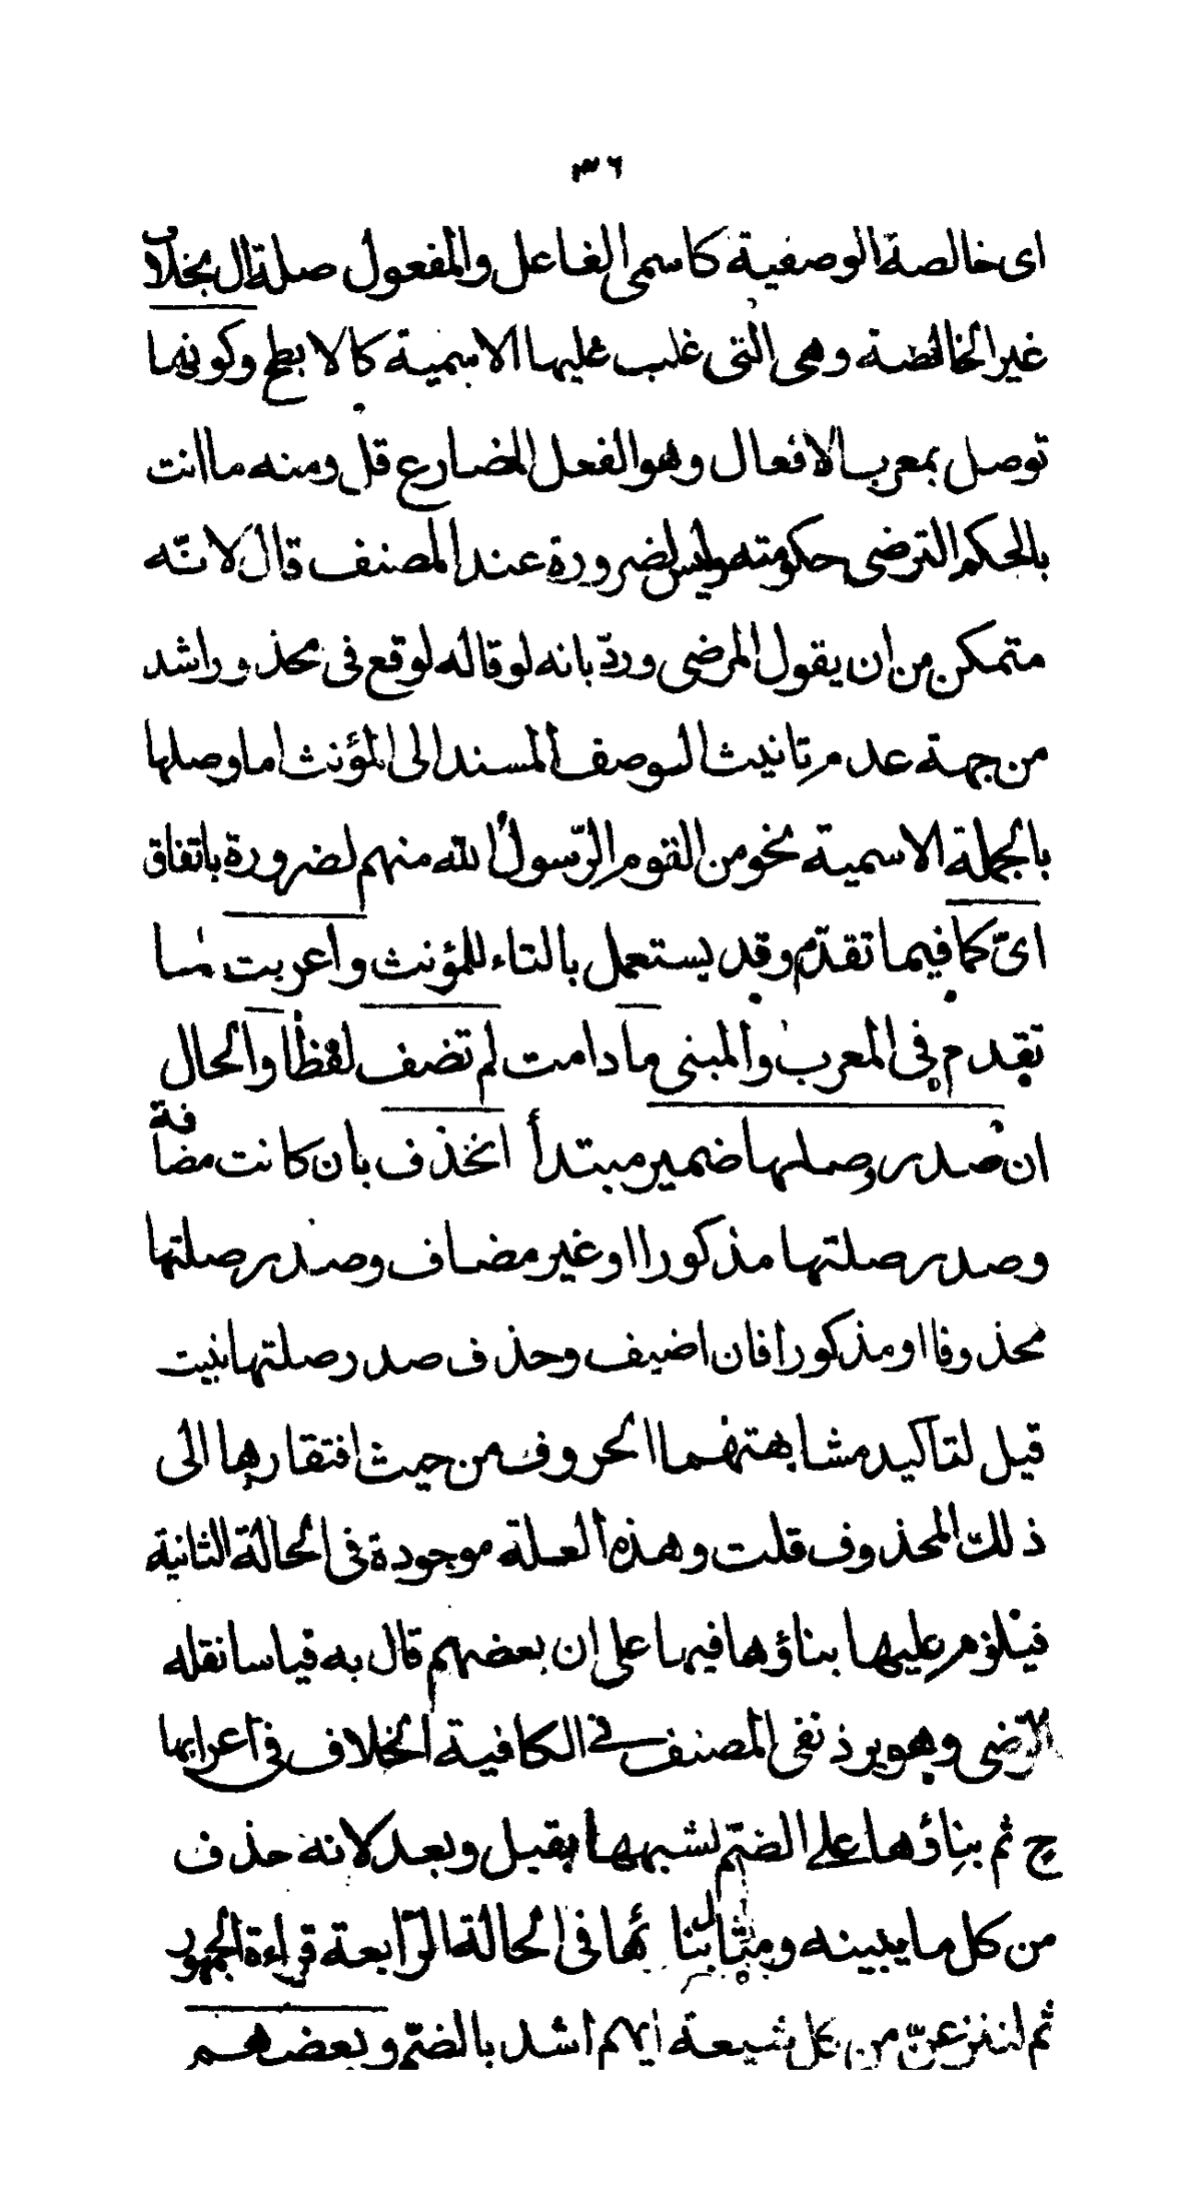 ٣٦
اى خالصة الوصفية كاسمى الفاعل والمفعول صلة ال بخلاف
غير الخالصة وهى التى غلب عليها الاسمية كالابطح وكونها
توصل بمعرب الافعال وهو الفعل المضارع قل ومنه ما انت
بالحكم الترضى حكومته وليس لضرورة عند المصنف قال لانّه
متمكن من ان يقول المرضى وردّ بانه لو قاله لوقع فى محذور اشد
من جهة عدم تانيث الوصف المسند الى المؤنث اما وصلها
بالجملة الاسمية نحو من القوم الرّسول الله منهم لضرورة باتفاق
اىّ كما فيما تقدّم وقد يستعمل بالتاء للمؤنث واعربت لما
تقدم فى المعرب والمبنى ما دامت لم تضف لفظا والحال
ان صدر وصلها ضمير مبتدأ انحذف بان كانت مضافة
وصدر صلتها مذكورا او غير مضاف وصدر صلتها
محذوفا او مذكورا فان اضيف وحذف صدر صلتها بنيت
قيل لتاكيد مشابهتهما الحروف من حيث افتقارها الى
ذلك المحذوف قلت وهذه العلة موجودة فى الحالة الثانية
فيلزم عليها بناؤها فيها على ان بعضهم قال به قياسا نقله
الرّضى وهو يرد نفى المصنف فى الكافية الخلاف فى اعرابها
ح ثم بناؤها على الضمّ لشبهها بقبل وبعد لانه حذف
من كل ما يبينه ومثال بنائها فى الحالة الرّابعة قراءة الجمهور
ثم لننزعنّ من كل شيعة ايهم اشد بالضمّ وبعضهم